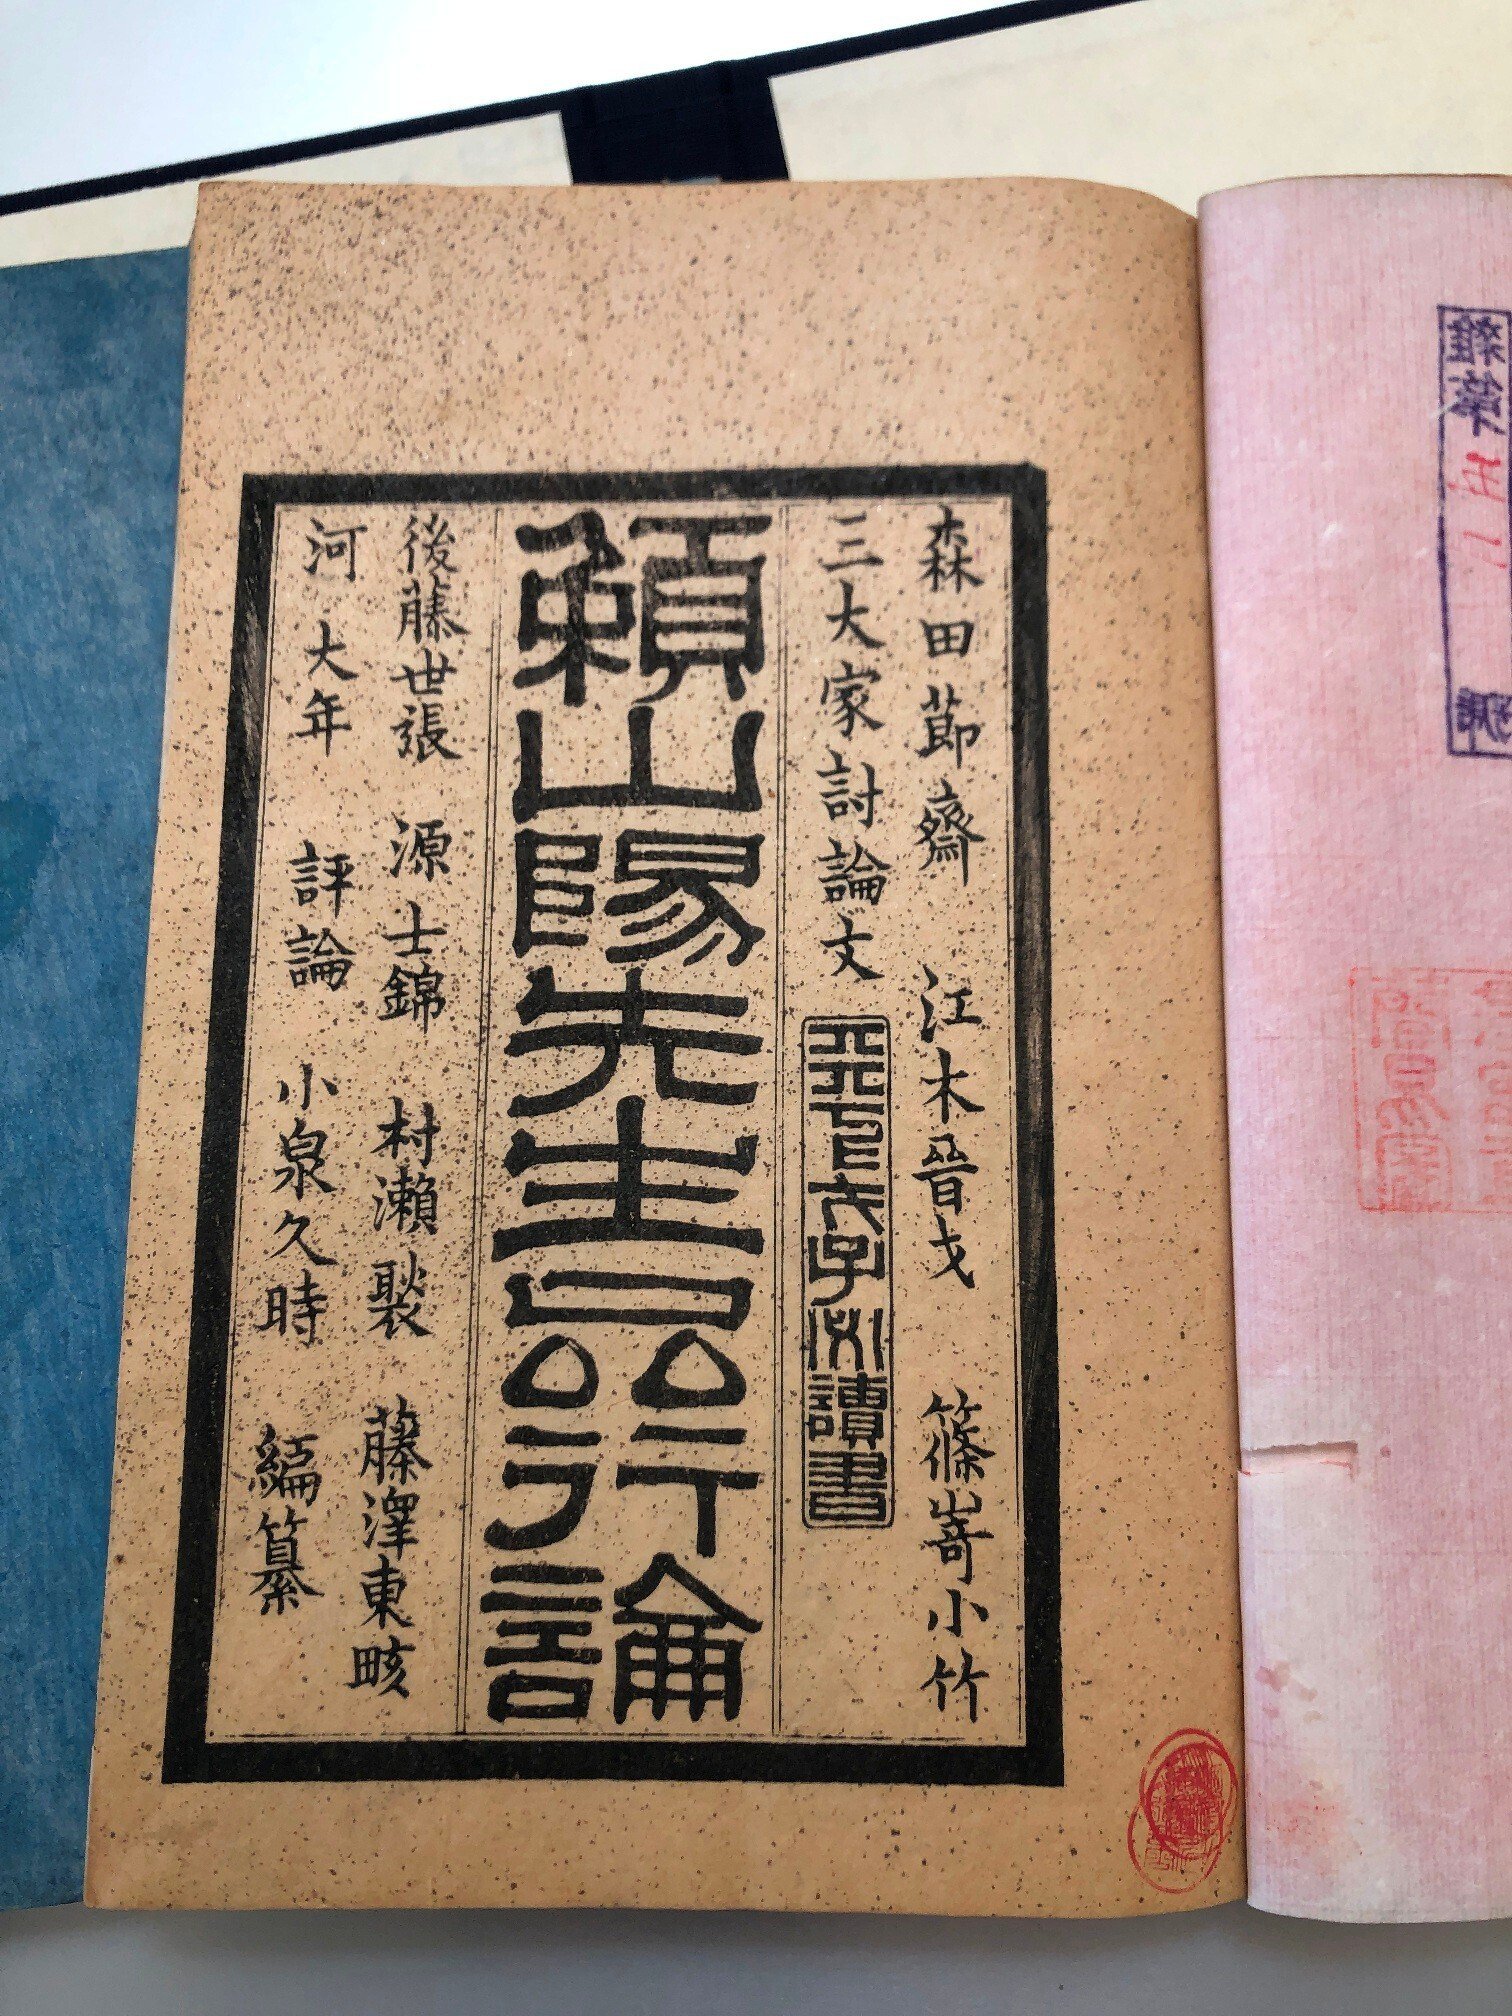 森田莭齋 江木晉戈 篠嵜小竹
三大家討論文
讀書
賴山陽先生品行論
後藤世張 源士錦 村瀨褧 藤澤東畡
河大年 評論 小泉久時 編纂